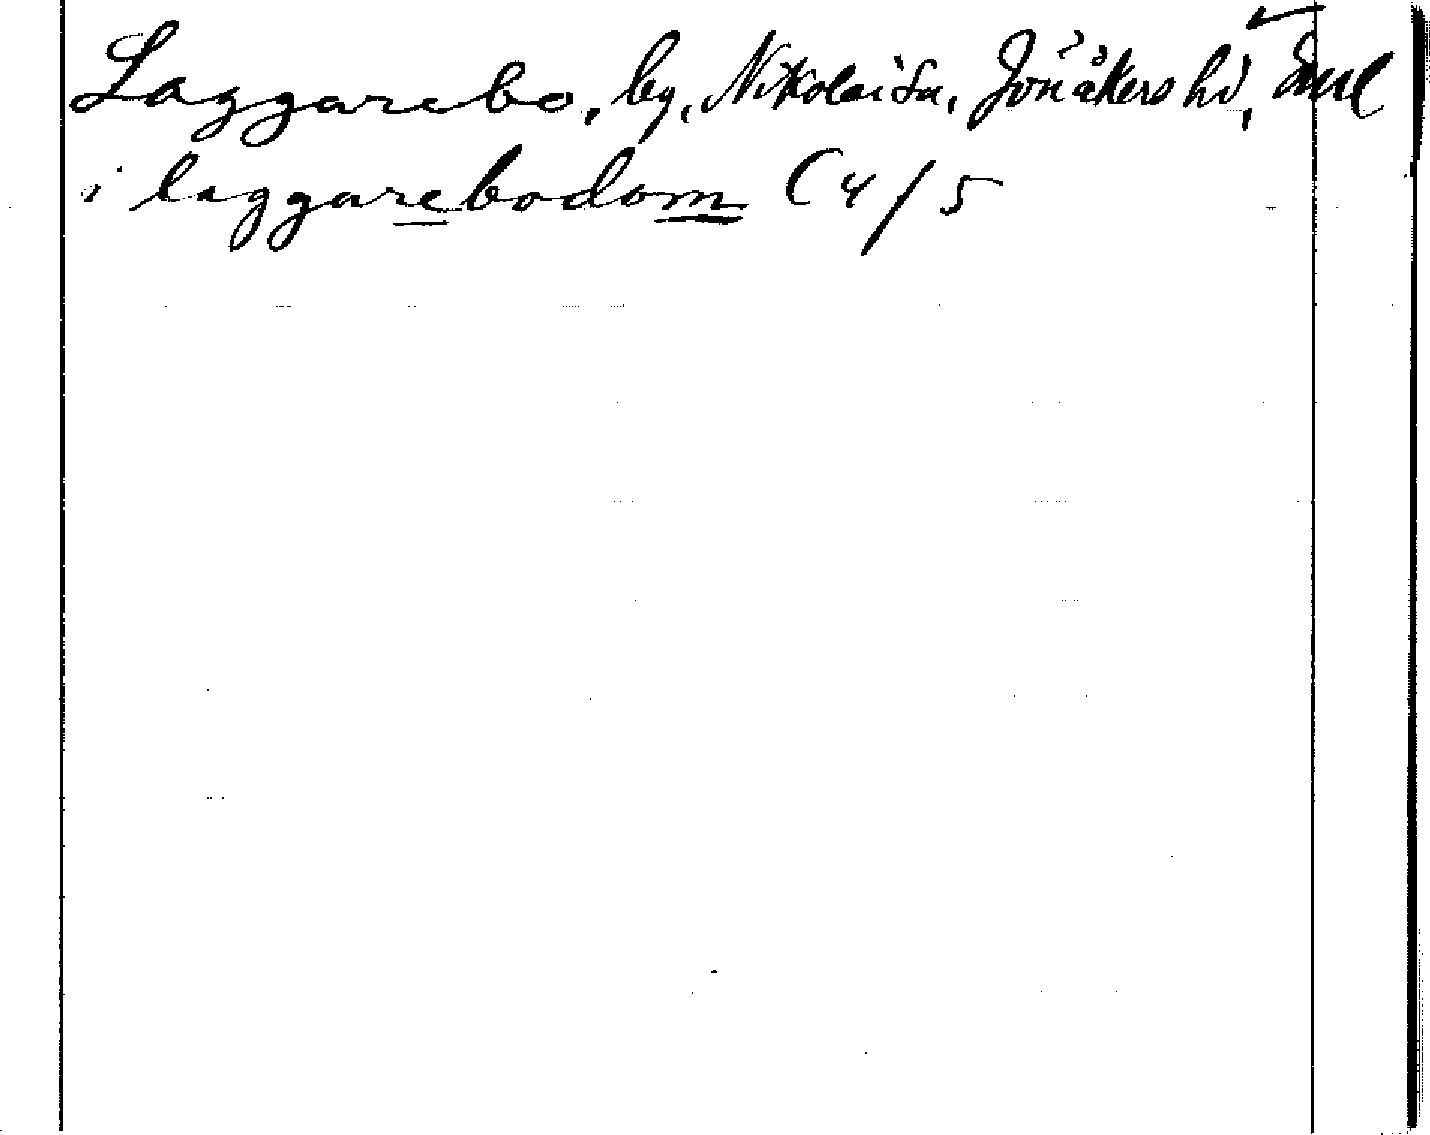 Laggarebo, by, Nikolai sn, Jönåkers hd, Sml
i laggarebodom C 4/5